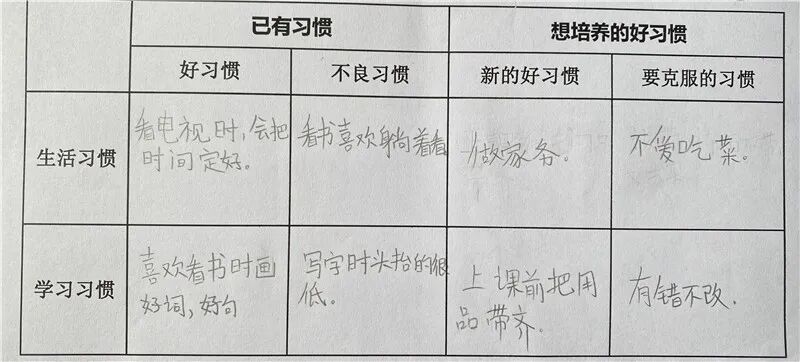 已有习惯
想培养的好习惯
好习惯
不良习惯
新的好习惯
要克服的习惯
生活习惯
看电视时,会把
时间定好。
看书喜欢躺着看
做家务。
不爱吃菜。
学习习惯
喜欢看书时画
好词,好句
写字时头抬的很
低。
上课前把用
品带齐.
有错不改.